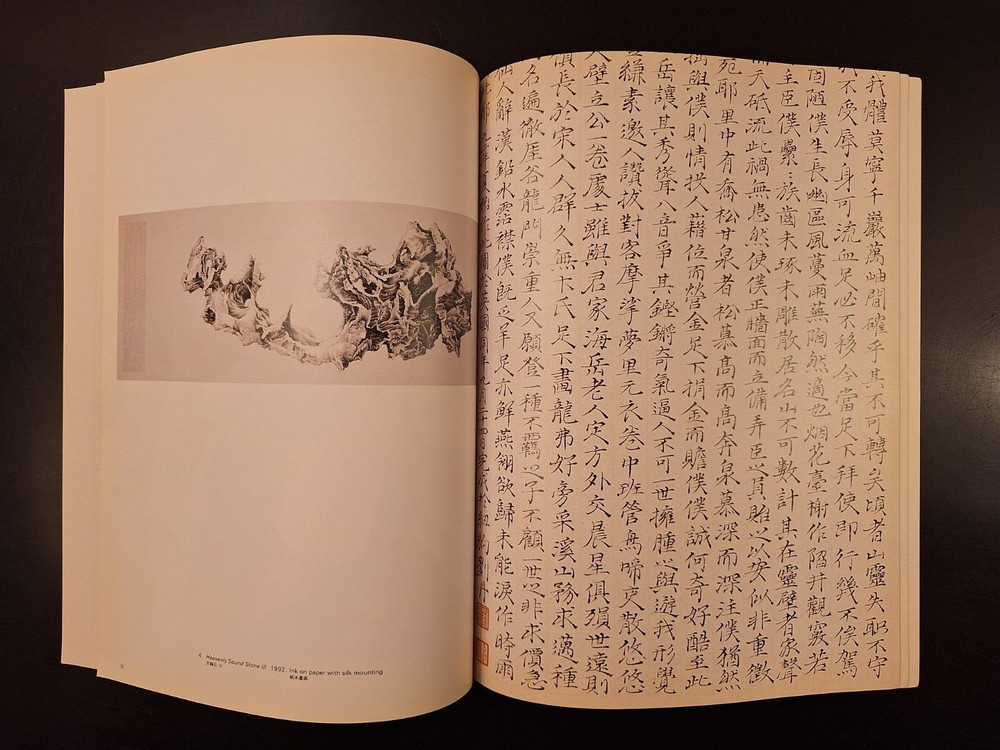 4. Heavenly Sound Stone III 1992. Ink on paper with silk mounting
我體莫寧千巖萬岫間確乎其不可轉矣頃者山靈失職不守
我不受辱身可流血足必不移今當足下拜使即行幾不俟駕
固陋僕生長幽區風蔓雨蕪陶然適也烟花臺榭作陷井觀寞若
主臣僕纍:族齒未琢未雕散居名山不可數計其在靈壁者家聲
天砥流此禍無患然使僕正牆面而立備弄臣之員貽之以安似非重徵
苑耶里中有喬松甘泉者松慕高而高奔泉慕深而深注僕猶然
與僕則情拱人藉位而營金足下捐金而贍僕僕誠何奇好酷至此
岳讓其秀聳八音爭其鏗鏘奇氣逼人不可一世擁腫之與遊我形覺
縑素邀人讚拔對客摩挲夢里元衣卷中班管烏啼吏散悠悠
人壁立公一卷處士雖與君家海岳老人定方外交晨星俱殞世遠則
長於宋人人群久無卞氏足下畵龍弗好旁采溪山務求邁種
名遍徹厓谷龍門崇重人人願登一種不羈之子不顧一世之非求價急
仙人辭漢鉛水霑襟僕既乏羊足亦鮮燕翎欲歸未能淚作時雨